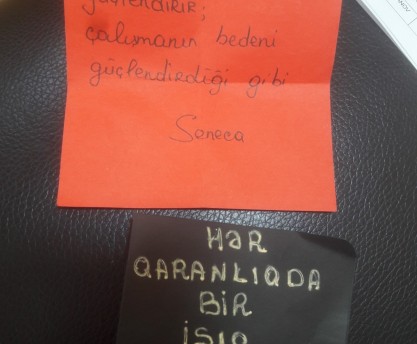 güçlendirir;
çalışmanın bedeni
güçlendirdiği gibi
Seneca
HƏR
QARANLIQDA
BİR